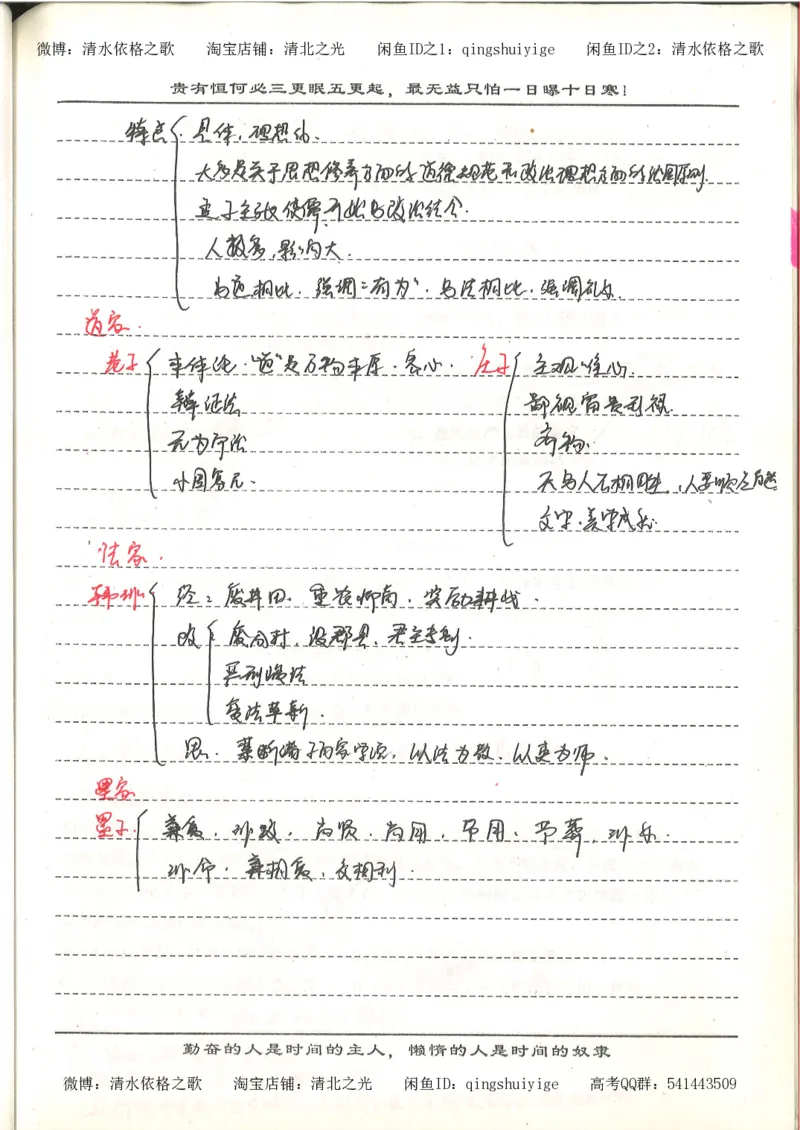 微博：清水依格之歌 淘宝店铺：清北之光 闲鱼ID之1：qingshuiyige 闲鱼ID之2：清水依格之歌
贵有恒何必三更眠五更起，最无益只怕一日曝十日寒！
特点 具体，理想化.
大多是关于思想修养方面的道德规范和政治理想方面的治国原则.
孟子主张使儒开始与政治结合.
人数多,影响大.
与道相比.强调"有为".与法相比.强调礼.
道家.
老子 本体论."道"是万物本原.客心. 庄子 主观唯心.
辩证法 鄙视富贵利禄.
无为 齐物.
小国寡民. 天与人不相胜,人要顺应自然
文学.美学成就.
法家.
韩非 经：废井田.重农抑商.奖励耕战.
政 废分封,设郡县,君主专制.
严刑峻法
变法革新.
思.禁断诸子百家学说,以法为教.以吏为师.
墨家
墨子. 兼爱,非攻,尚贤.尚同,节用.节葬,非乐.
非命.兼相爱,交相利.
勤奋的人是时间的主人，懒惰的人是时间的奴隶
微博：清水依格之歌 淘宝店铺：清北之光 闲鱼ID：qingshuiyige 高考QQ群：541443509